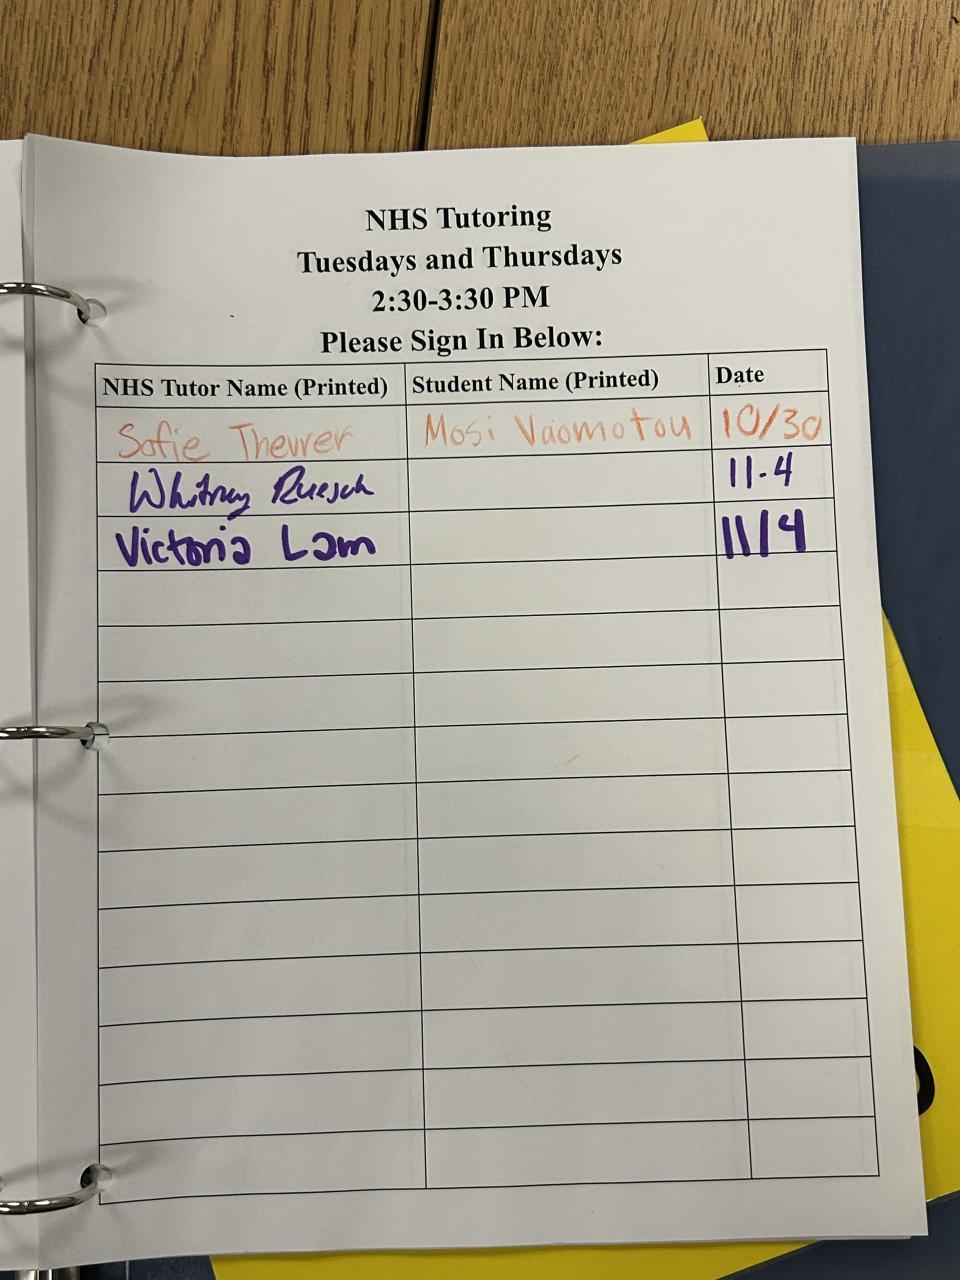 NHS Tutoring
Tuesdays and Thursdays
2:30-3:30 PM
Please Sign In Below:
NHS Tutor Name (Printed) Student Name (Printed) Date
Sofie Theurer Mosi Vaomotou 10/30
Whitney Ruesch 11-4
Victoria Lam 11/4